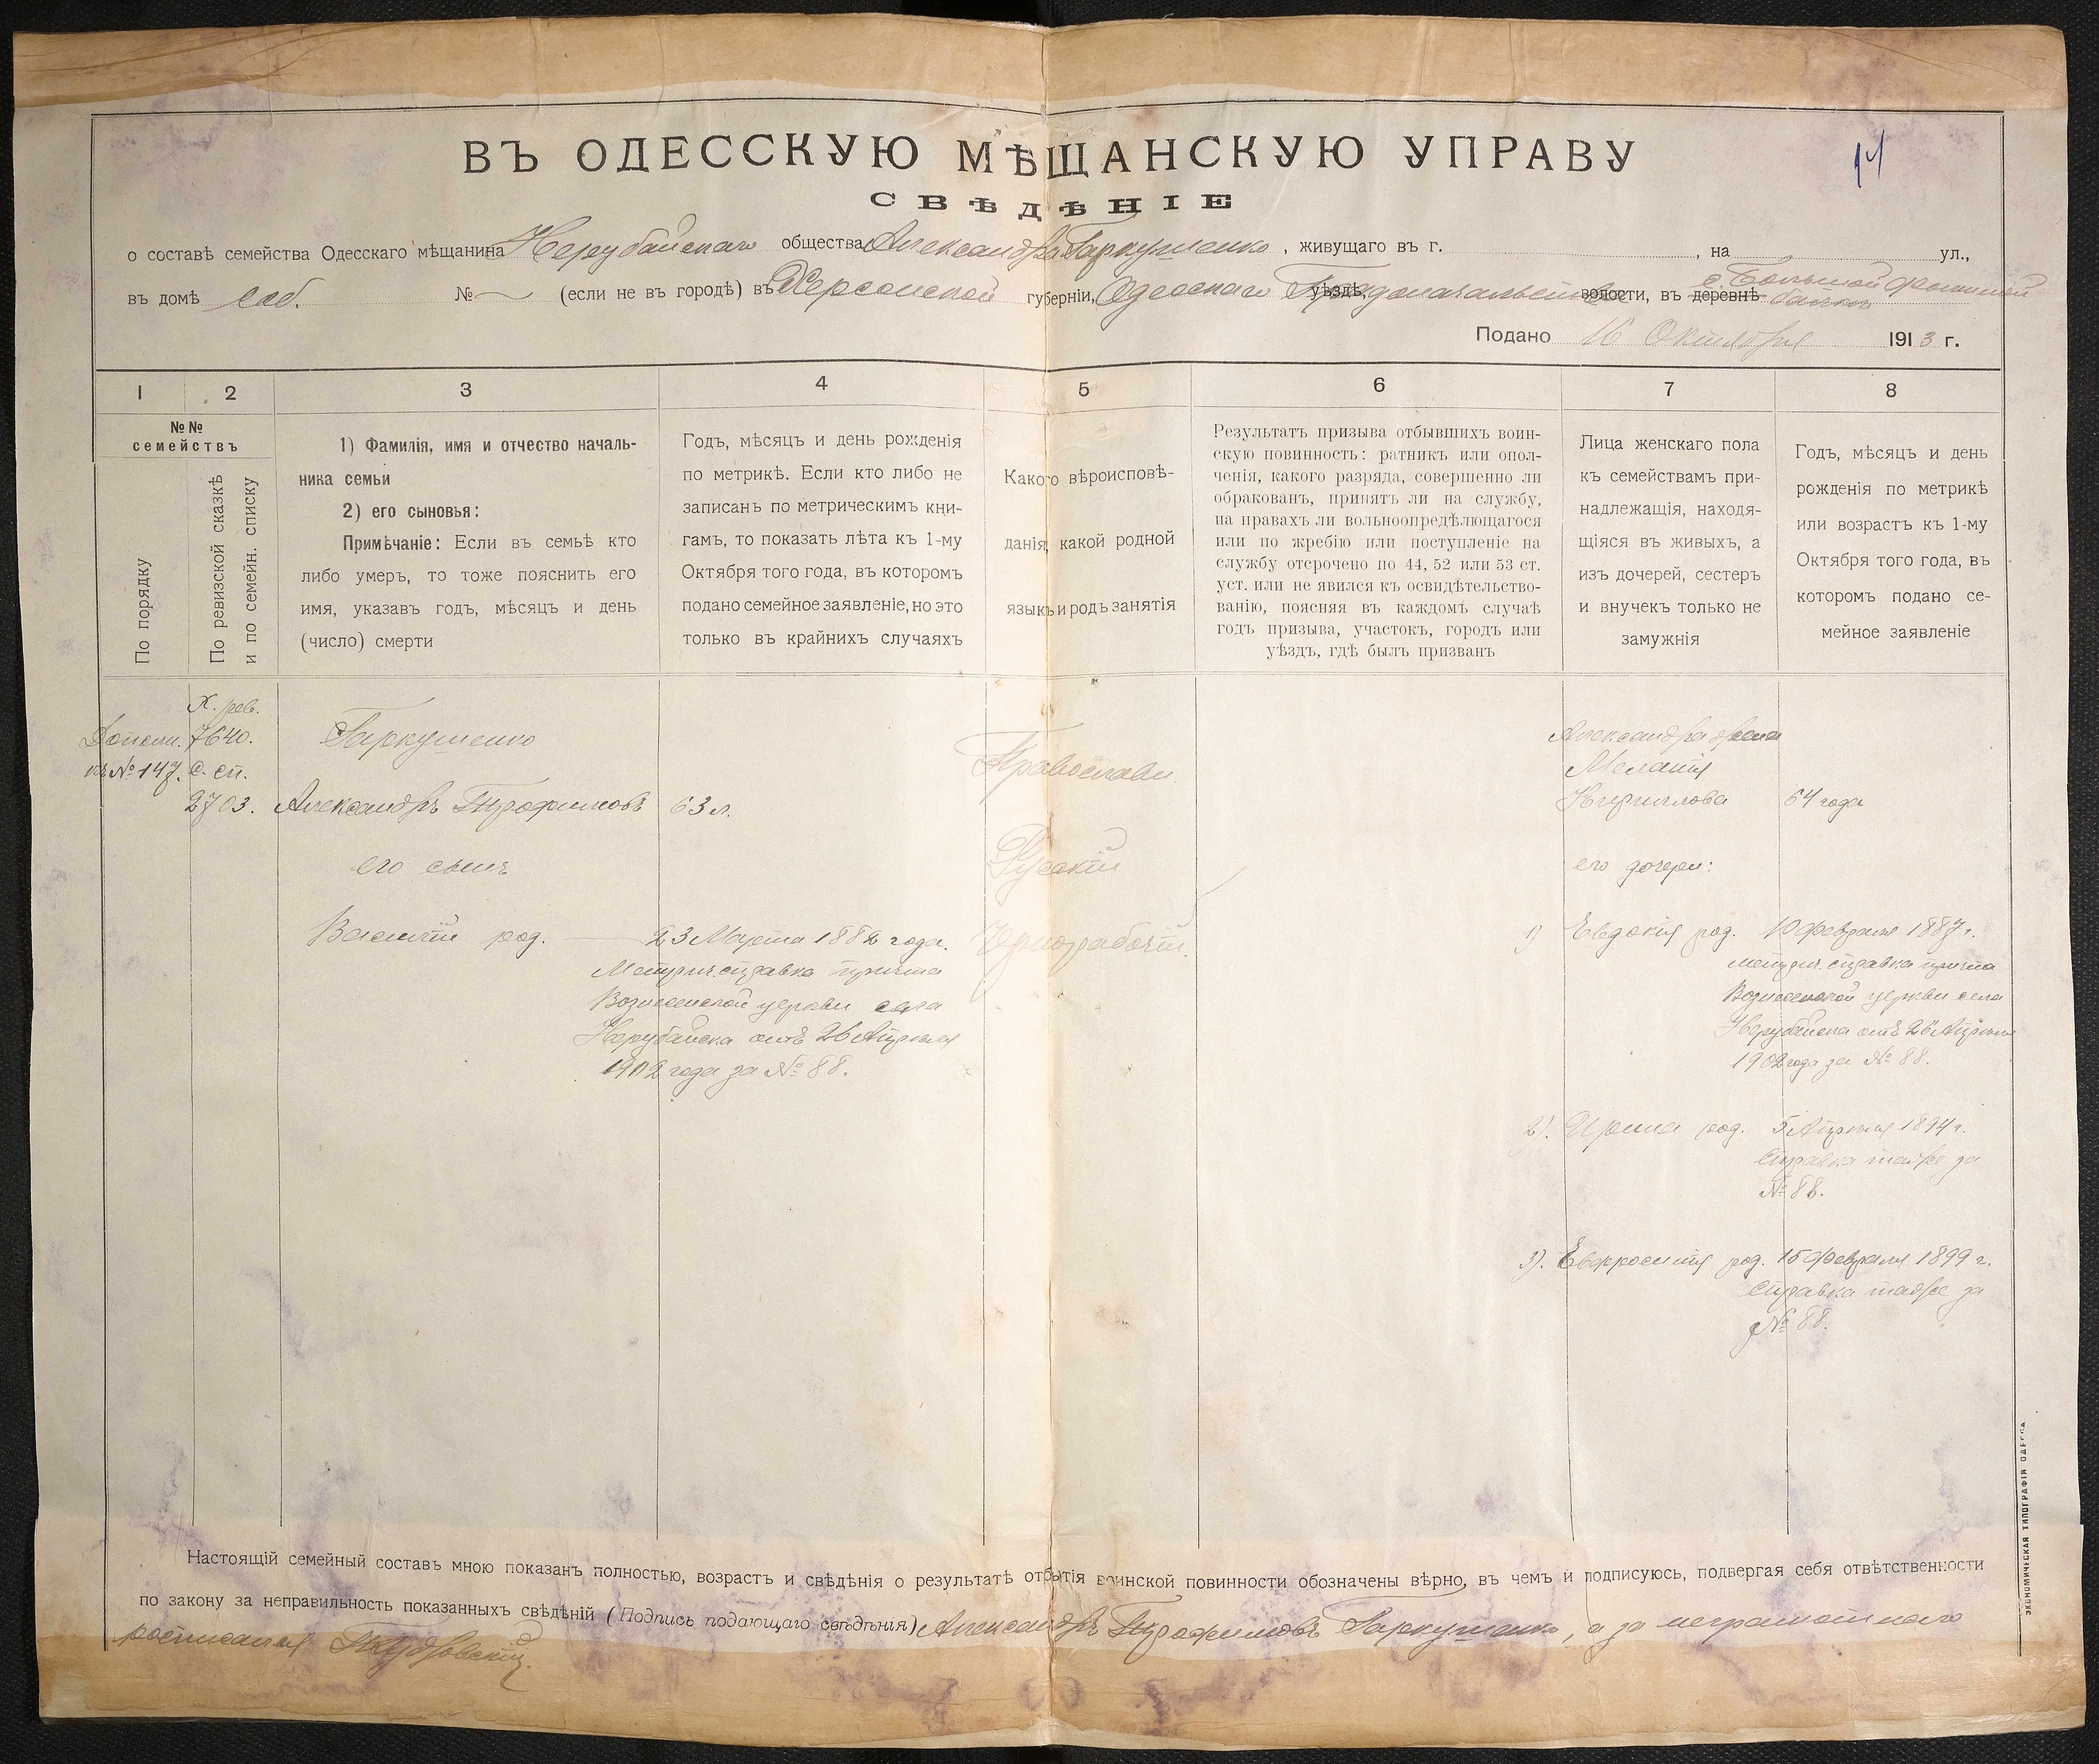 ВЪ ОДЕССКУЮ МѢЩАНСКУЮ УПРАВУ
14
СВѢДѢНІЕ
о составѣ семейства Одесскаго мѣщанина Нерубайскаго общества Александра Гаркушенко, живущаго въ г. , на ул.,
въ домѣ соб. № — (если не въ городѣ) въ Херсонской губерніи, Одесскаго уѣзда, Градоначальства волости, въ деревнѣ с. Большой Фоминой балкѣ
Подано 16 Октября 1913 г.
1 2 3 4 5 6 7 8
№№
семействъ
По порядку
По ревизской сказкѣ
и по семейн. списку
1) Фамилія, имя и отчество началь-
ника семьи
2) его сыновья:
Примѣчаніе: Если въ семьѣ кто
либо умеръ, то тоже пояснить его
имя, указавъ годъ, мѣсяцъ и день
(число) смерти
Годъ, мѣсяцъ и день рожденія
по метрикѣ. Если кто либо не
записанъ по метрическимъ кни-
гамъ, то показать лѣта къ 1-му
Октября того года, въ которомъ
подано семейное заявленіе, но это
только въ крайнихъ случаяхъ
Какого вѣроисповѣ-
данія, какой родной
языкъ и родъ занятія
Результатъ призыва отбывшихъ воин-
скую повинность: ратникъ или опол-
ченія, какого разряда, совершенно ли
обракованъ, принятъ ли на службу,
на правахъ ли вольноопредѣляющагося
или по жребію или поступленіе на
службу отсрочено по 44, 52 или 53 ст.
уст. или не явился къ освидѣтельство-
ванію, поясняя въ каждомъ случаѣ
годъ призыва, участокъ, городъ или
уѣздъ, гдѣ былъ призванъ
Лица женскаго пола
къ семействамъ при-
надлежащія, находя-
щіяся въ живыхъ, а
изъ дочерей, сестеръ
и внучекъ только не
замужнія
Годъ, мѣсяцъ и день
рожденія по метрикѣ
или возрастъ къ 1-му
Октября того года, въ
которомъ подано се-
мейное заявленіе
Дополн.
къ № 147.
X. рев.
7640.
с. сп.
2703.
Гаркушенко
Александръ Трофимовъ 63 л.
его сынъ
Василій род. — 23 Марта 1882 года.
Метрич. справка причта
Вознесенской церкви села
Нерубайска отъ 26 Апрѣля
1902 года за № 88.
Православн.
Русскій
Чернорабочій.
Александра жена
Меланія
Кириллова 64 года
его дочери:
1) Евдокія род. 10 февраля 1887 г.
метрич. справка причта
Вознесенской церкви села
Нерубайска отъ 26 Апрѣля
1902 года за № 88.
2). Ирина род. 5 Апрѣля 1894 г.
Справка таже за
№ 88.
3). Евфросинія род. 15 февраля 1899 г.
Справка таже за
№ 88.
Настоящій семейный составъ мною показанъ полностью, возрастъ и свѣдѣнія о результатѣ отбытія воинской повинности обозначены вѣрно, въ чемъ и подписуюсь, подвергая себя отвѣтственности
по закону за неправильность показанныхъ свѣдѣній (Подпись подающаго свѣдѣнія) Александръ Трофимовъ Гаркушенко, а за неграмотнаго
росписался
ЭКОНОМИЧЕСКАЯ ТИПОГРАФІЯ ОДЕССА